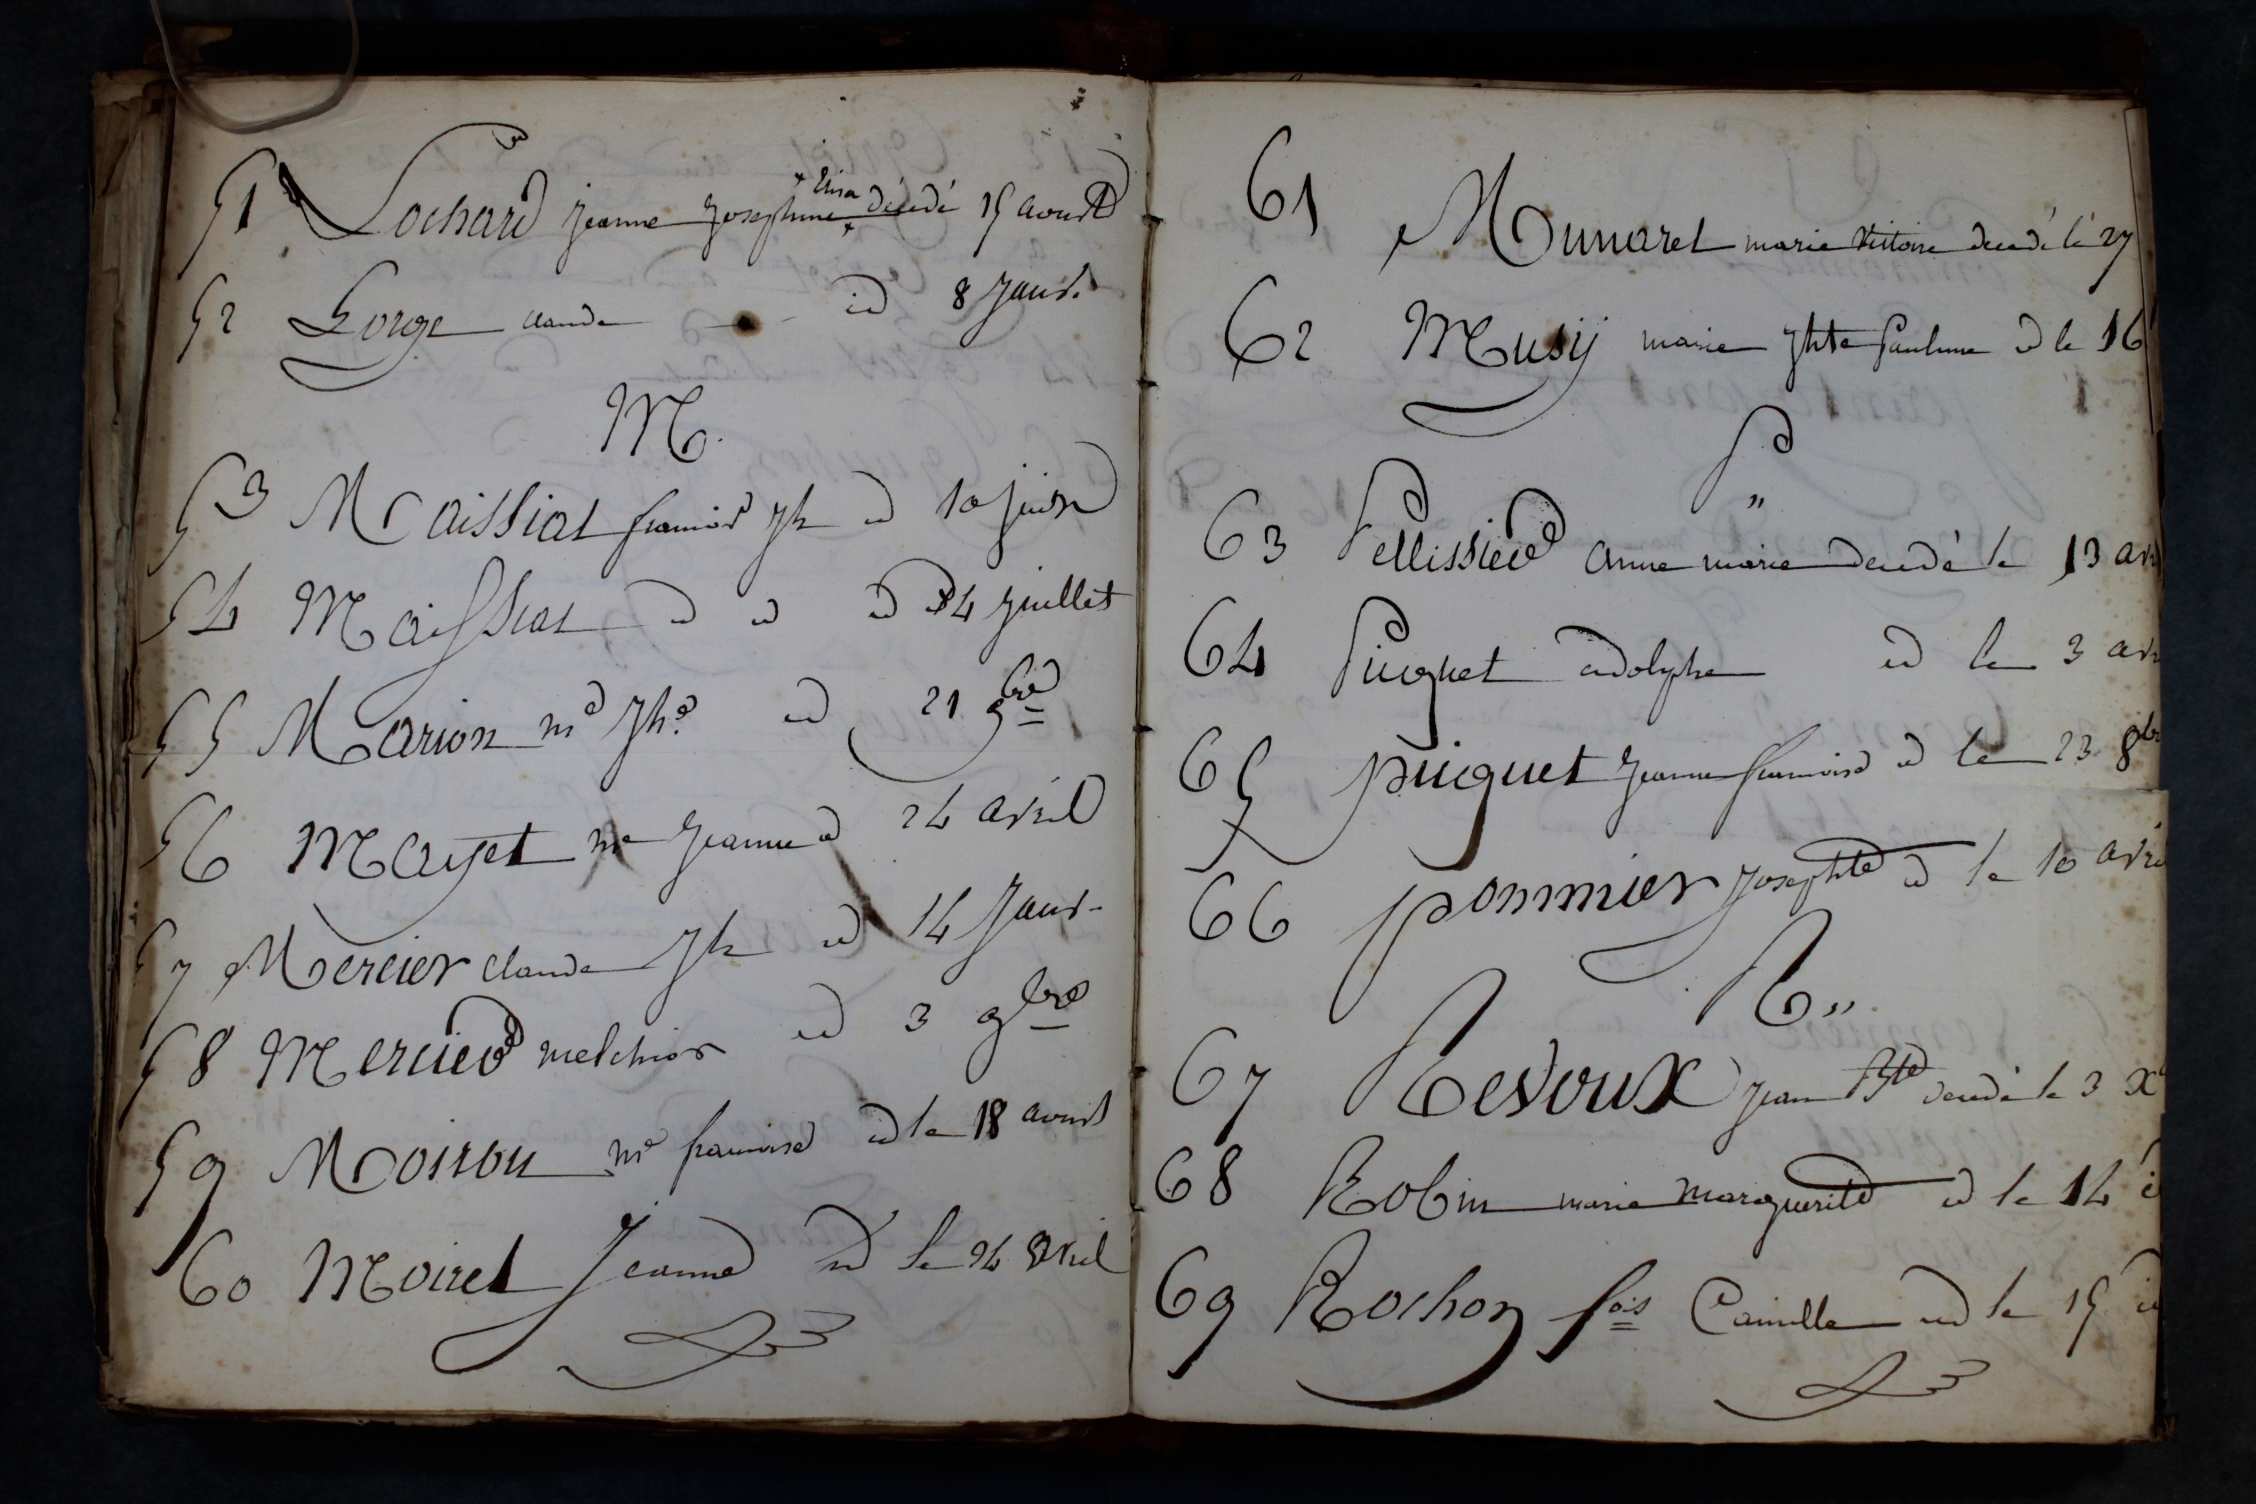 51 Lochard jeanne josephine Elisa décédé 15 aoust
52 Lorge claude id 8 Janv.
M.
53 Maissiat francois jh id 10 juin
54 Maissiat id id id 24 juillet
55 Marion m.e jh.e id 21 9bre
56 Mayet me jeanne id 24 avril
57 Mercier claude jh id 14 Janv.
58 Mercier melchior id 3 9bre
59 Moiron me francoise id le 18 aoust
60 Moiret Jeanne id le 24 avril
61 Munaret marie victoire decedé le 27
62 Musy marie jhte pauline id le 16
P
"
63 Pellissier anne marie decedé le 13 avr
64 Piuquet adolphe id le 3 avr
65 puiquet jeanne francoise id le 23 8br
66 pommier josephte id le 10 avri
R "
67 Revoux jean Bte decedé le 3 X
68 Robin marie marguerite id le 14 i
69 Rochon fois Camille id le 15 id